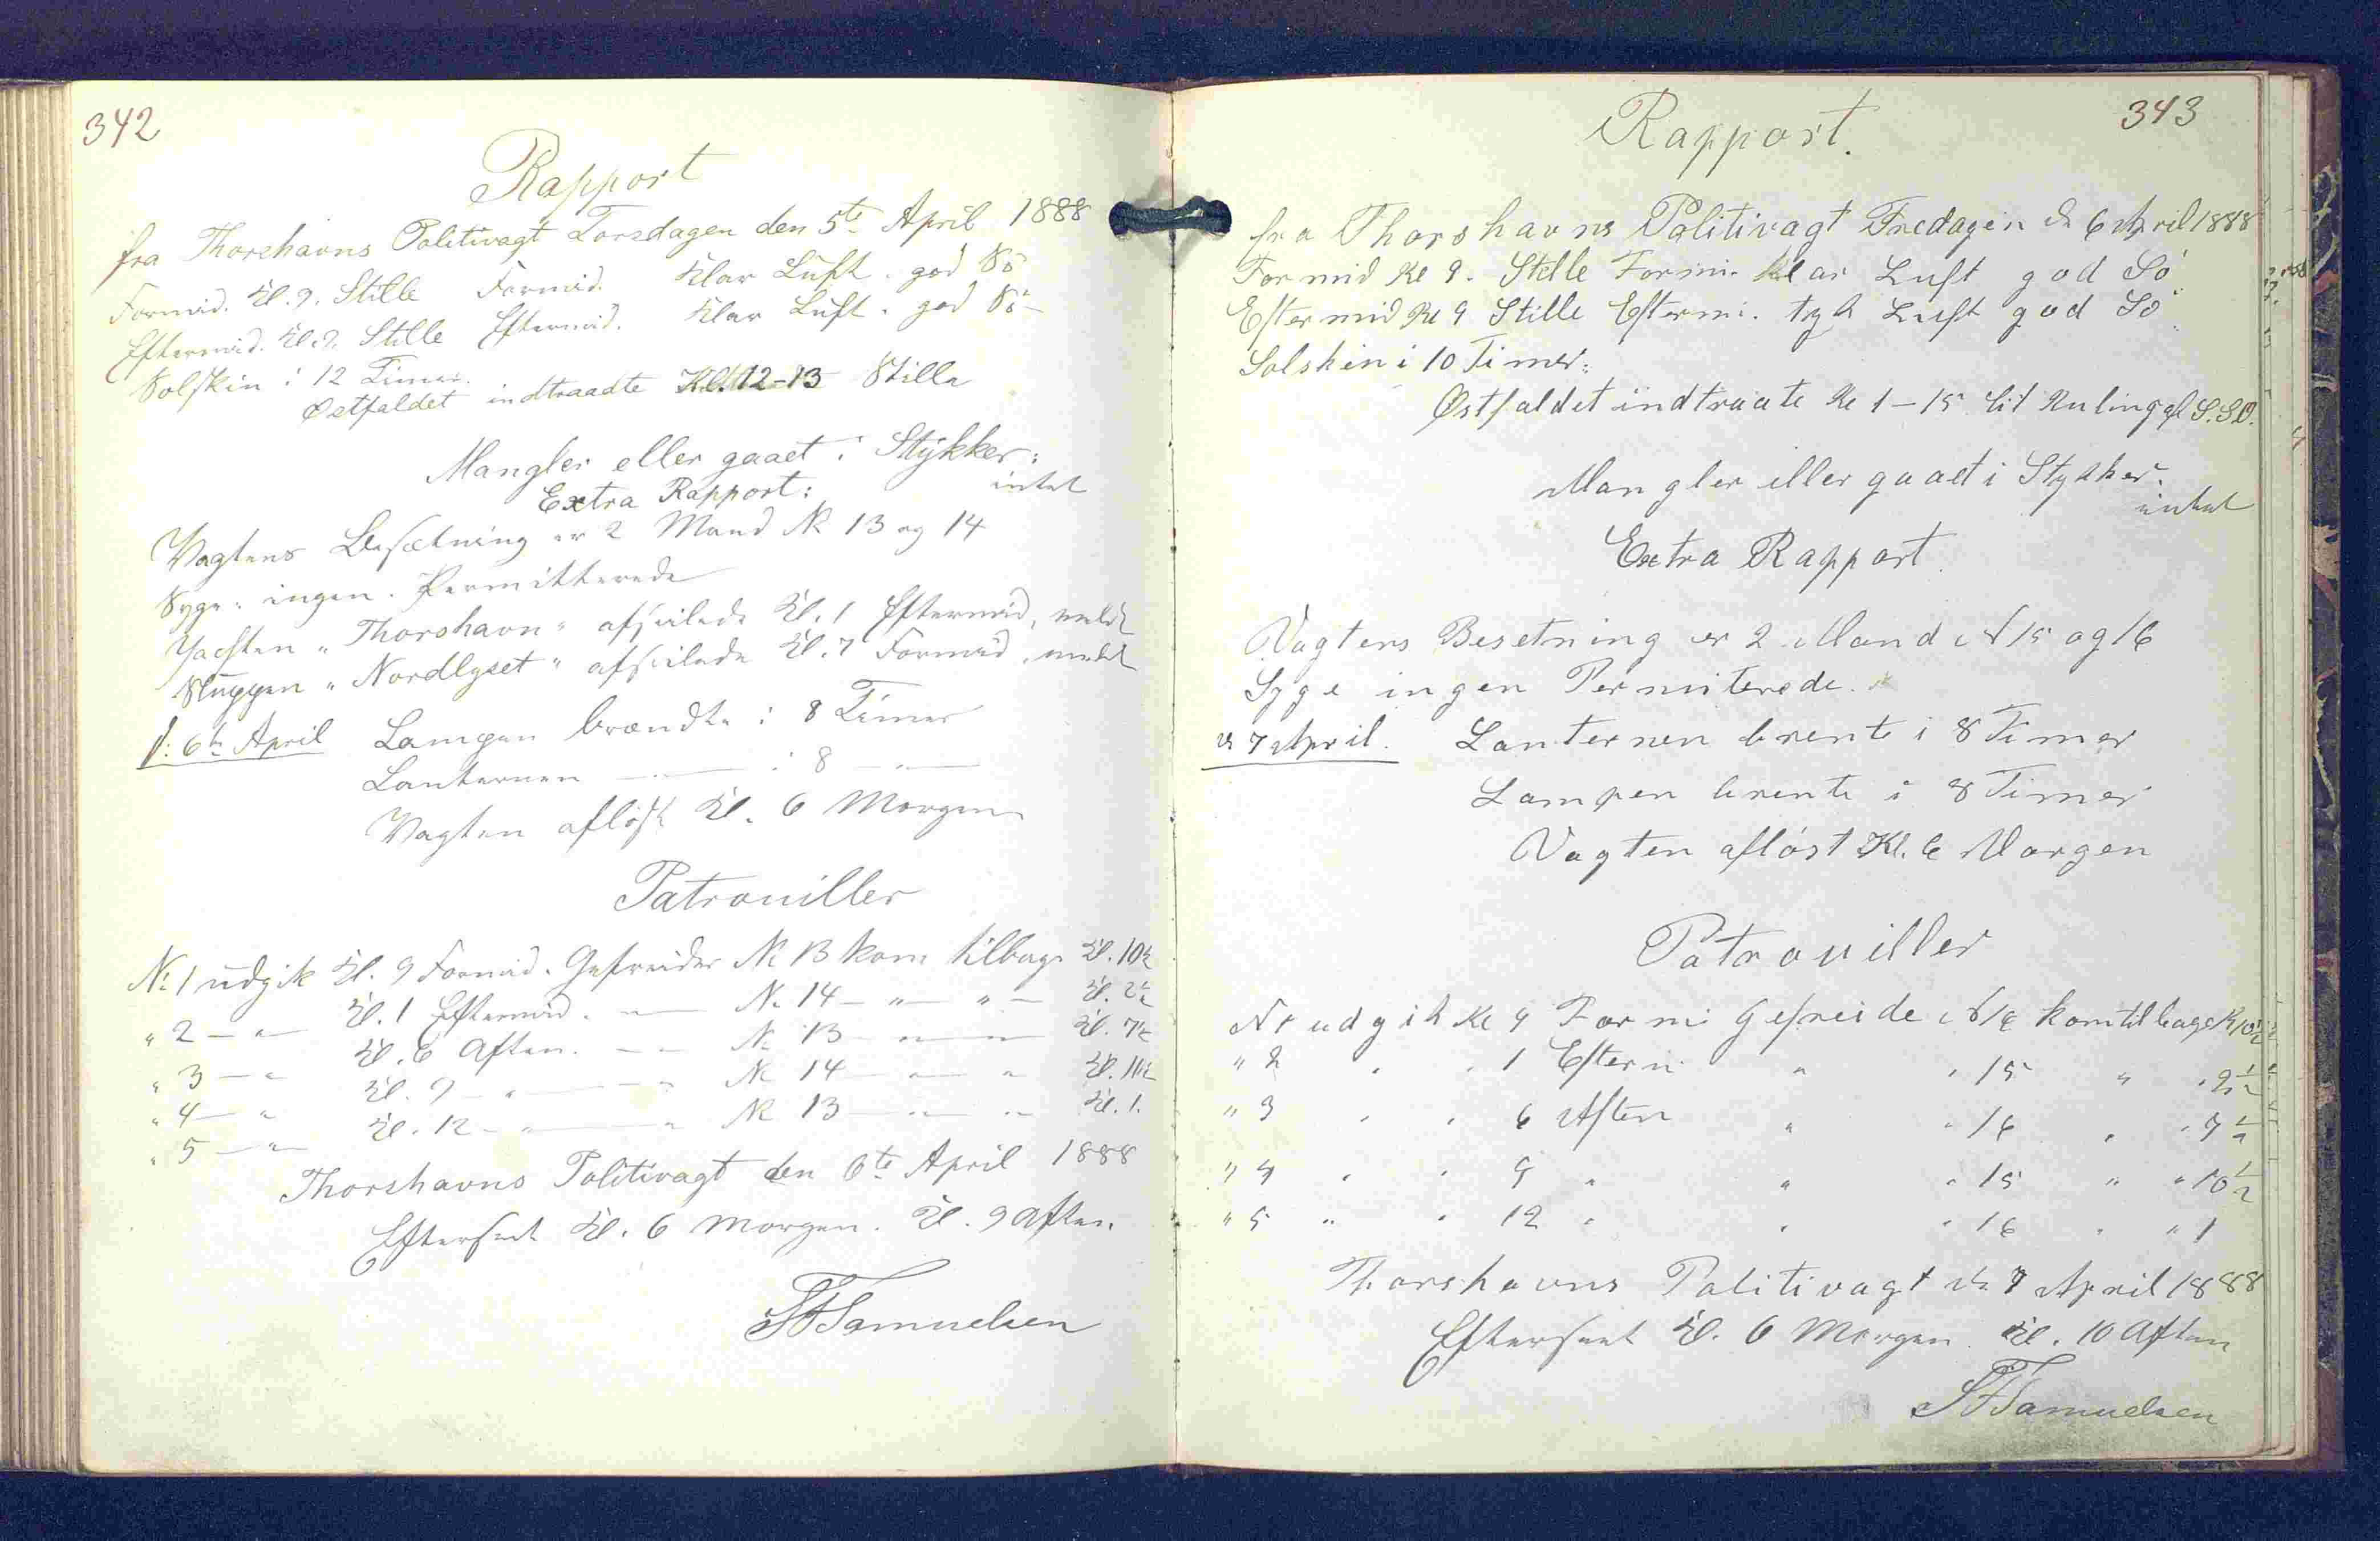 342
Rapport
fra Thorshavns Politivagt Torsdagen den 5te April 1888
Formid. Kl. 9. Stille Formid. Klar Luft. god Sö
Eftermid. Kl. 9. Stille Eftermid. Klar Luft. god Sö
Solskin i 12 Timer.
Østfaldet indtraadte Kl. 12-13 Stille
Mangler eller gaaet i Stykker:
intet
Extra Rapport:
Vagtens Besætning er 2 Mand № 13 og 14
Syge: ingen. Permitterede
Jachten "Thorshavn" afseilede Kl. 1 Eftermid, meldt
Sluppen "Nordlyset" afseilede Kl. 7 Formid, meldt
d: 6te April Lampen brændte i 8 Timer
Lanternen — " — i 8 — " —
Vagten aflöst Kl. 6 Morgen
Patrouiller
№ 1 udgik Kl. 9 Formid. Gefreider № 13 kom tilbage Kl. 10½
" 2 — " — Kl. 1 Eftermid. — " — № 14 — " — " — Kl. 2½
" 3 — " Kl. 6 Aften. — " — № 13 — " — " — Kl. 7½
" 4 — " Kl. 9 — " — " № 14 — " — " Kl. 10½
" 5 — " — Kl. 12 — " — " № 13 — " — " Kl. 1.
Thorshavns Politivagt den 6te April 1888
Efterseet Kl. 6 Morgen. Kl. 9 Aften
Samuelsen
343
Rapport.
fra Thorshavns Politivagt Fredagen d 6 April 1888
Formid Kl 9. Stille Formi. klar Luft god Sö
Eftermid Kl 9 Stille Eftermi. tyk Luft god Sö
Solskin i 10 Timer.
Østfaldet indtraate Kl 1-15 lit Kuling af S.SO.
Mangler eller gaaet i Stykker.
intet
Extra Rapport.
Vagtens Besetning er 2 Mand № 15 og 16
Syge ingen Permiterede.
d 7 April. Lanternen brente i 8 Timer
Lampen brente i 8 Timer
Vagten aflöst Kl. 6 Morgen
Patrouiller
Nr udgik Kl 9 Formi Gefreide № 16 kom tilbage Kl 10½
" 2 " " 1 Efterm " " 15 " " 2½
" 3 " " 6 Aften " " 16 " " 7½
" 4 " " 9 " " " 15 " " 10½
" 5 " " 12 " " " 16 " " 1
Thorshavns Politivagt d 7 April 1888
Efterseet Kl. 6 Morgen. Kl. 10 Aften
Samuelsen